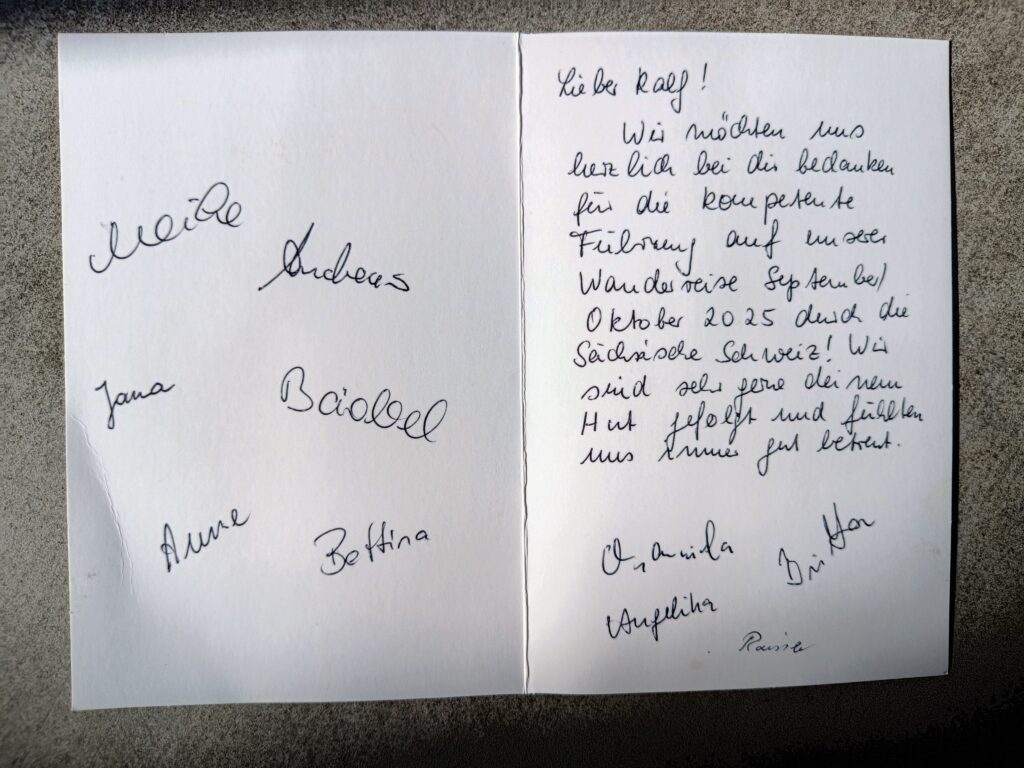 Meike
Andreas
Jana
Bärbel
Anne
Bettina
Lieber Ralf!
Wir möchten uns
herzlich bei dir bedanken
für die kompetente
Führung auf unserer
Wanderreise September/
Oktober 2025 durch die
Sächsische Schweiz! Wir
sind sehr gerne deinem
Hut gefolgt und fühlten
uns immer gut betreut.
Angelika